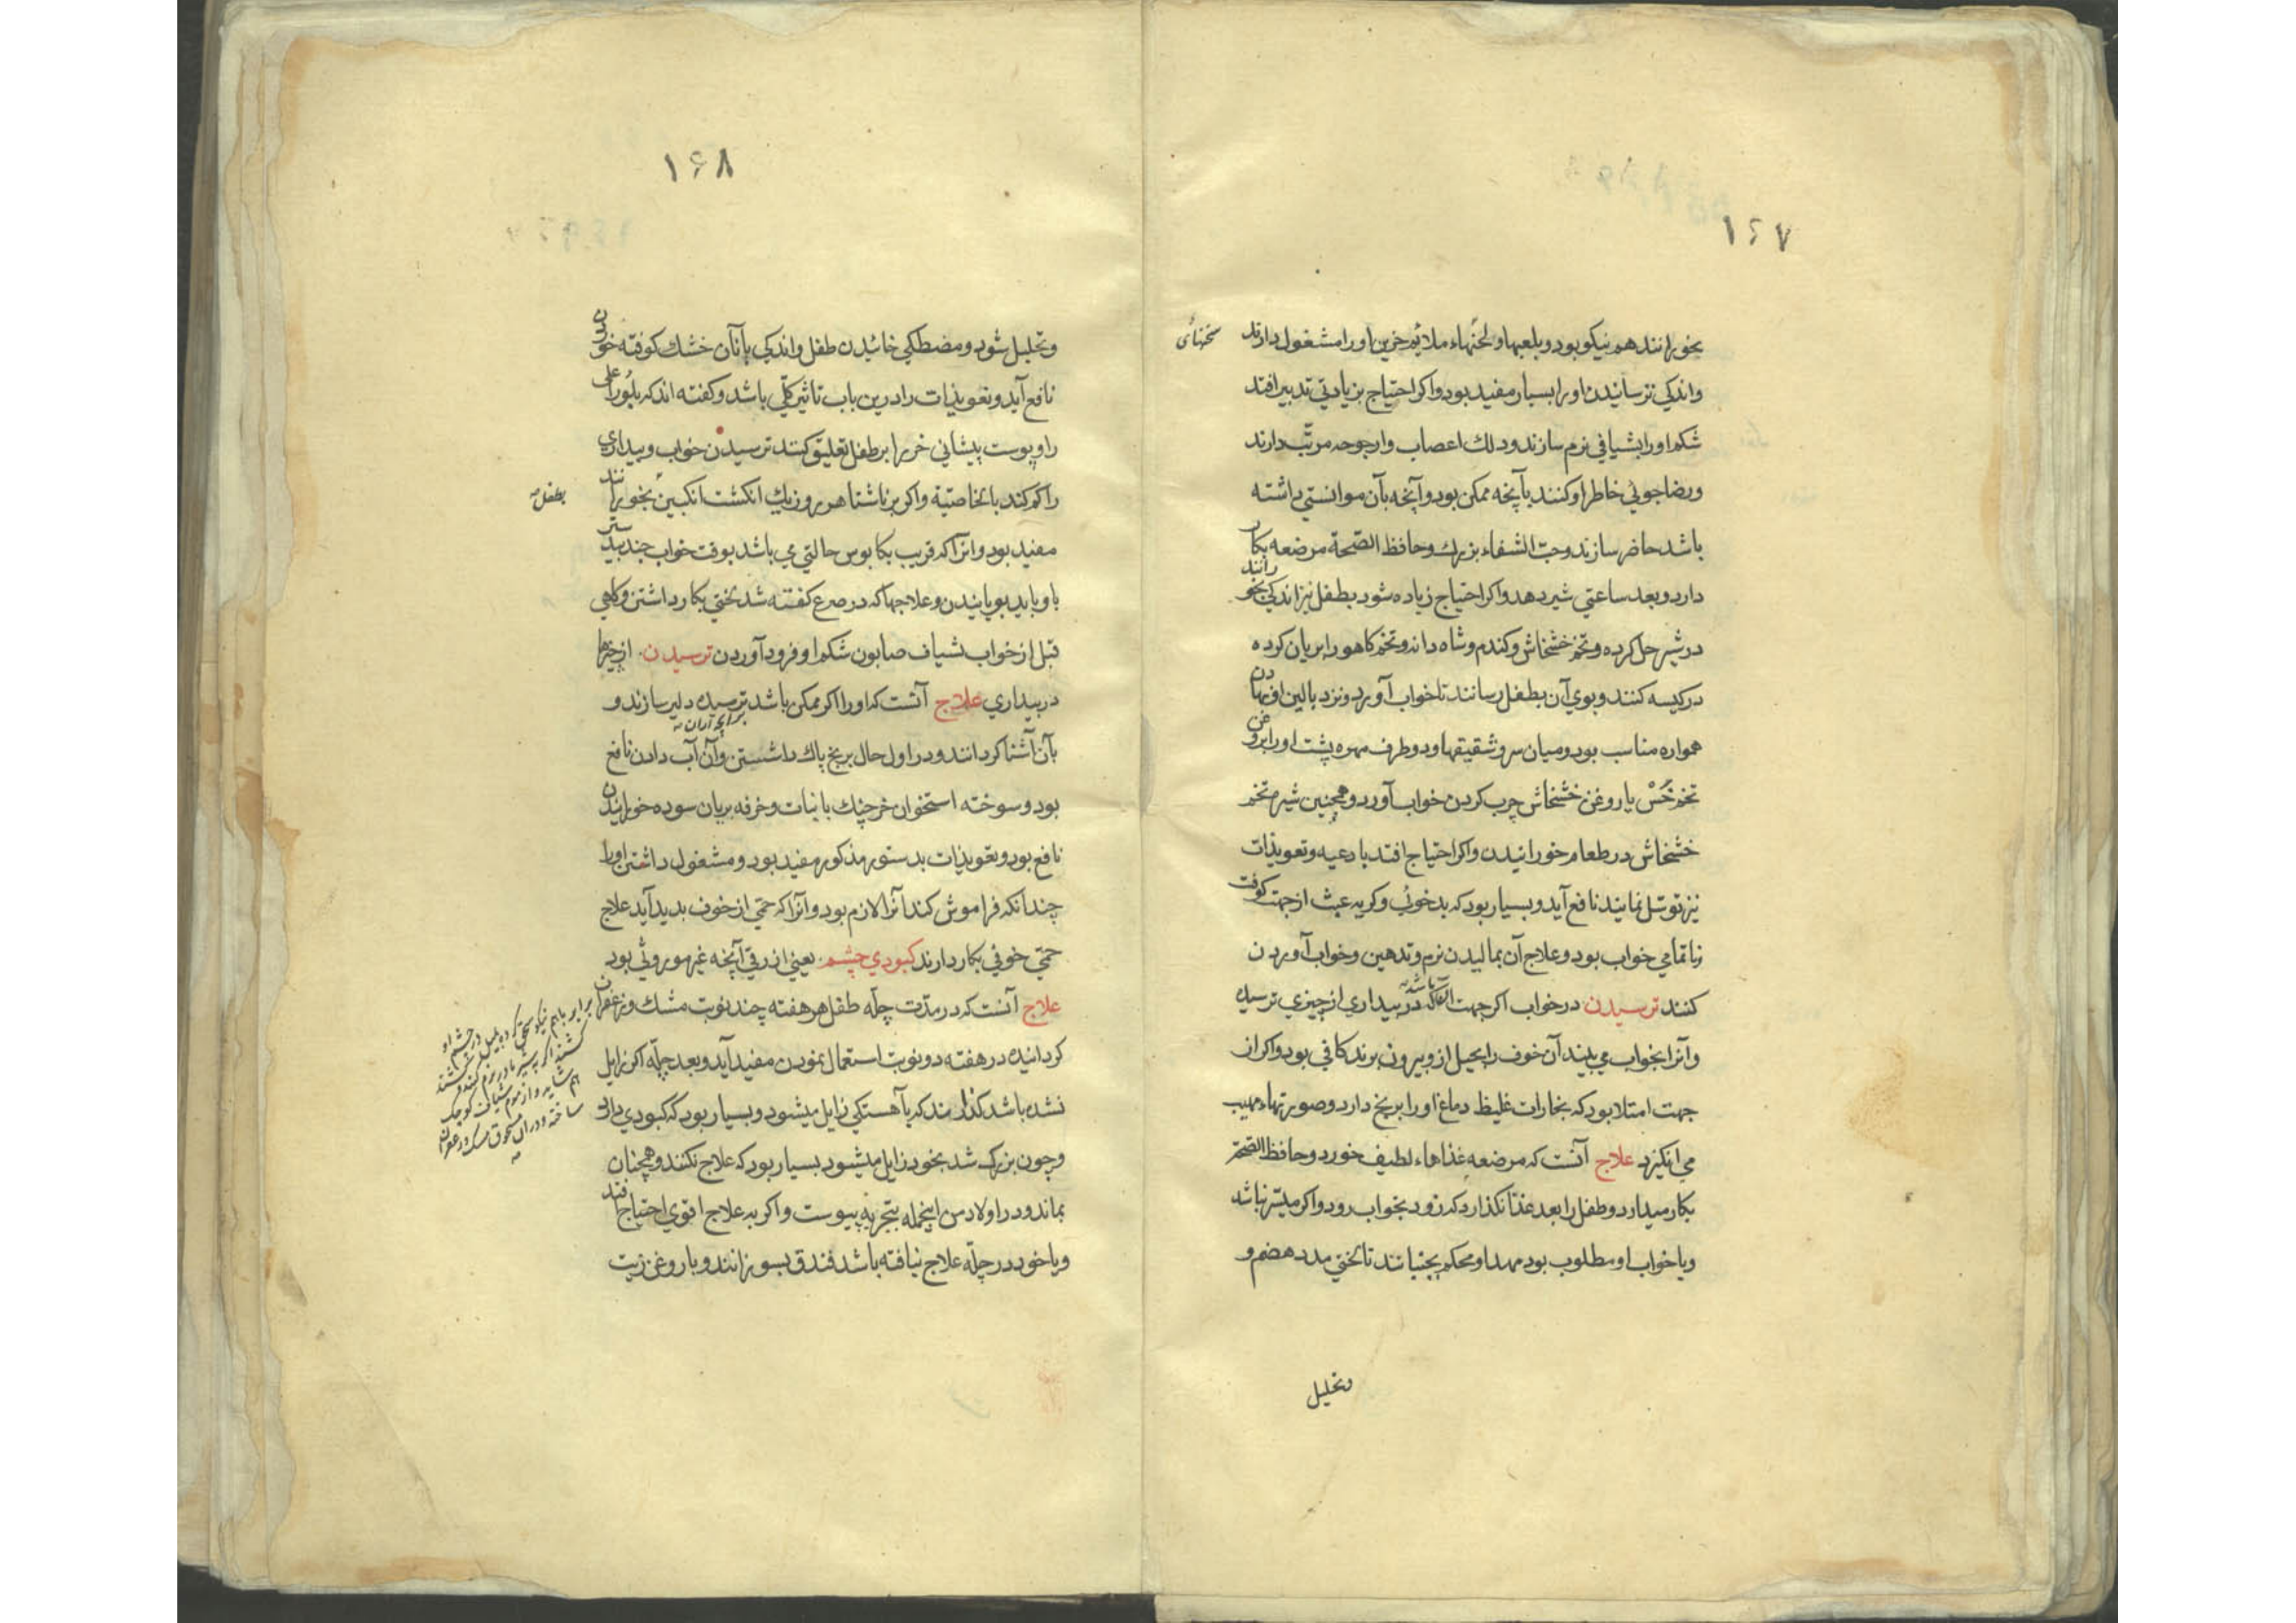 ۱۶۷
بخورانند هم نیکو بود و بلعبها و لحنهاء ملایم حزین اورا مشغول دارند
سخنهائی
واندکی ترسانیدن اورا بسیار مفید بود واکر احتیاج بزیادتی تدبیر افتد
شکم اورا بشیافی نرم سازند و دلك اعصاب وارجوحه مرتب دارند
ورضا جوئی خاطر او کنند بآنچه ممکن بود وآنچه بآن موانستی داشته
باشد حاضر سازند وحب الشفاء بزرك وحافظ الصحة مرضعه بکار
دارد وبعد ساعتی شیر دهد واکر احتیاج زیاده شود بطفل نیز اندکی بخورانند
در شیر حل کرده وتخم خشخاش وکندم وشاه دانه وتخم کاهو را بریان کرده
در کیسه کنند وبوی آن بطفل رسانند تا خواب آورد ونزد بالین او نهادن
همواره مناسب بود ومیان سر وشقیقها ودو طرف مهره پشت اورا بروغن
تخم خس یا روغن خشخاش چرب کردن خواب آورد وهمچنین شیره تخم
خشخاش در طعام خورانیدن واکر احتیاج افتد بادعیه وتعویذات
نیز توسل نمایند نافع آید وبسیار بود که بدخوئی وکریه عبث از جهت کوفت
ناتمامی خواب بود وعلاج آن بمالیدن نرم وتدهین وخواب آوردن
کنند ترسیدن در خواب اکر جهت آن باشد که در بیداری از چیزی ترسیده
وآنرا بخواب می بیند آن خوف را بحیل از و بیرون برند کافی بود واکر از
جهت امتلا بود که بخارات غلیظ دماغ اورا برنج دارد وصورتهاء مهیب
می انکیزد علاج آنست که مرضعه غذاهاء لطیف خورد وحافظ الصحة
بکار میدارد وطفل را بعد غذا نکذارد که زود بخواب رود واکر میسر نباشد
ویا خواب او مطلوب بود مهد او محکم بجنبانند تا لختی مدد هضم و
وتحلیل
۱۶۸
وتحلیل شود ومصطکی خائیدن طفل واندکی با نان خشك کوفته خوردن
نافع آید وتعویذات را درین باب تاثیر کلی باشد وکفته اند که بلور اعلی
را و پوست پیشانی خر را بر طفل تعلیق کنند ترسیدن خواب وبیداری
را کم کند بالخاصیة واکر بر ناشتا هر روز یك انکشت انکبین بخورانند
بطفل
مفید بود وانرا که قریب بکابوس حالتی می باشد بوقت خواب جندبیدستر
باو باید بویانیدن وعلاجها که در صرع کفته شد لختی بکار داشتن وکاهی
قبل از خواب بشیاف صابون شکم او فرود آوردن ترسیدن از چیزها
در بیداری علاج آنست که اورا اکر ممکن باشد ترسیده دلیر سازند و
بآن آشنا کردانند ودر اول حال برنج پاك داشستن وآن آب دادن نافع
بود وسوخته استخوان خرچنك با نبات وخرفه بریان سوده خورانیدن
نافع بود وتعویذات بدستور مذکور مفید بود ومشغول داشتن اورا
چندانکه فراموش کند آنرا لازم بود وآنرا که حمی از خوف بدید آید علاج
حمی خوفی بکار دارند کبودی چشم یعنی ازرقی آنچه غیر موروثی بود
علاج آنست که در مدت چله طفل هر هفته چند نوبت مشك وزعفران
برابر باهم نیکو سحق کرده بمیل در چشم او
کشند
ساخته ودران مسحوق مسك وزعفران
کردانیده در هفته دو نوبت استعمال نمودن مفید آید وبعد چله اکر زایل
نشده باشد کذارند که بآهستکی زایل میشود وبسیار بود که کبودی دارد
وچون بزرك شد بخود زایل میشود بسیار بود که علاج نکنند وهمچنان
بماند ودر اولاد من اینجمله بتجربه پیوست واکر به علاج اقوی احتیاج افتد
ویا خود در چله علاج نیافته باشد فندق بسوزانند وبا روغن زیت